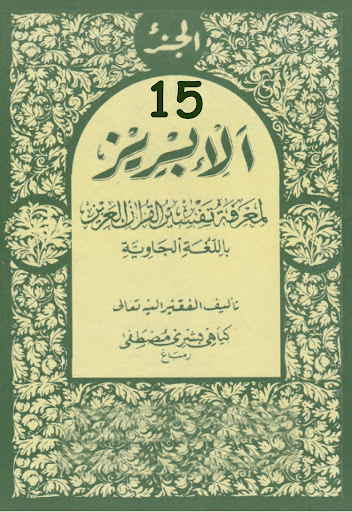 الجزء
15
الإبريز
لمعرفة تفسير القرآن العزيز
باللغة الجاوية
تأليف الفقير إليه تعالى
كياهي بشري مصطفى
رمباغ